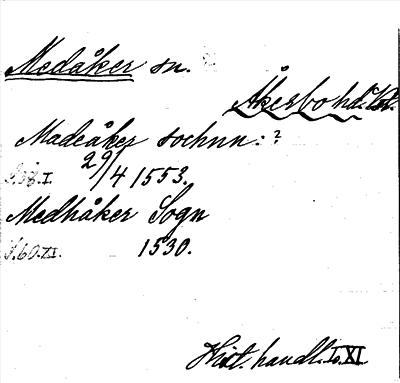 Medåker sn.
Åkerbo hd.
Madeåker sochnn: ?
29/4 1553.
S.38.I.
Medhåker Sogn
S.60.XI. 1530.
Hist. handl. I o. XI